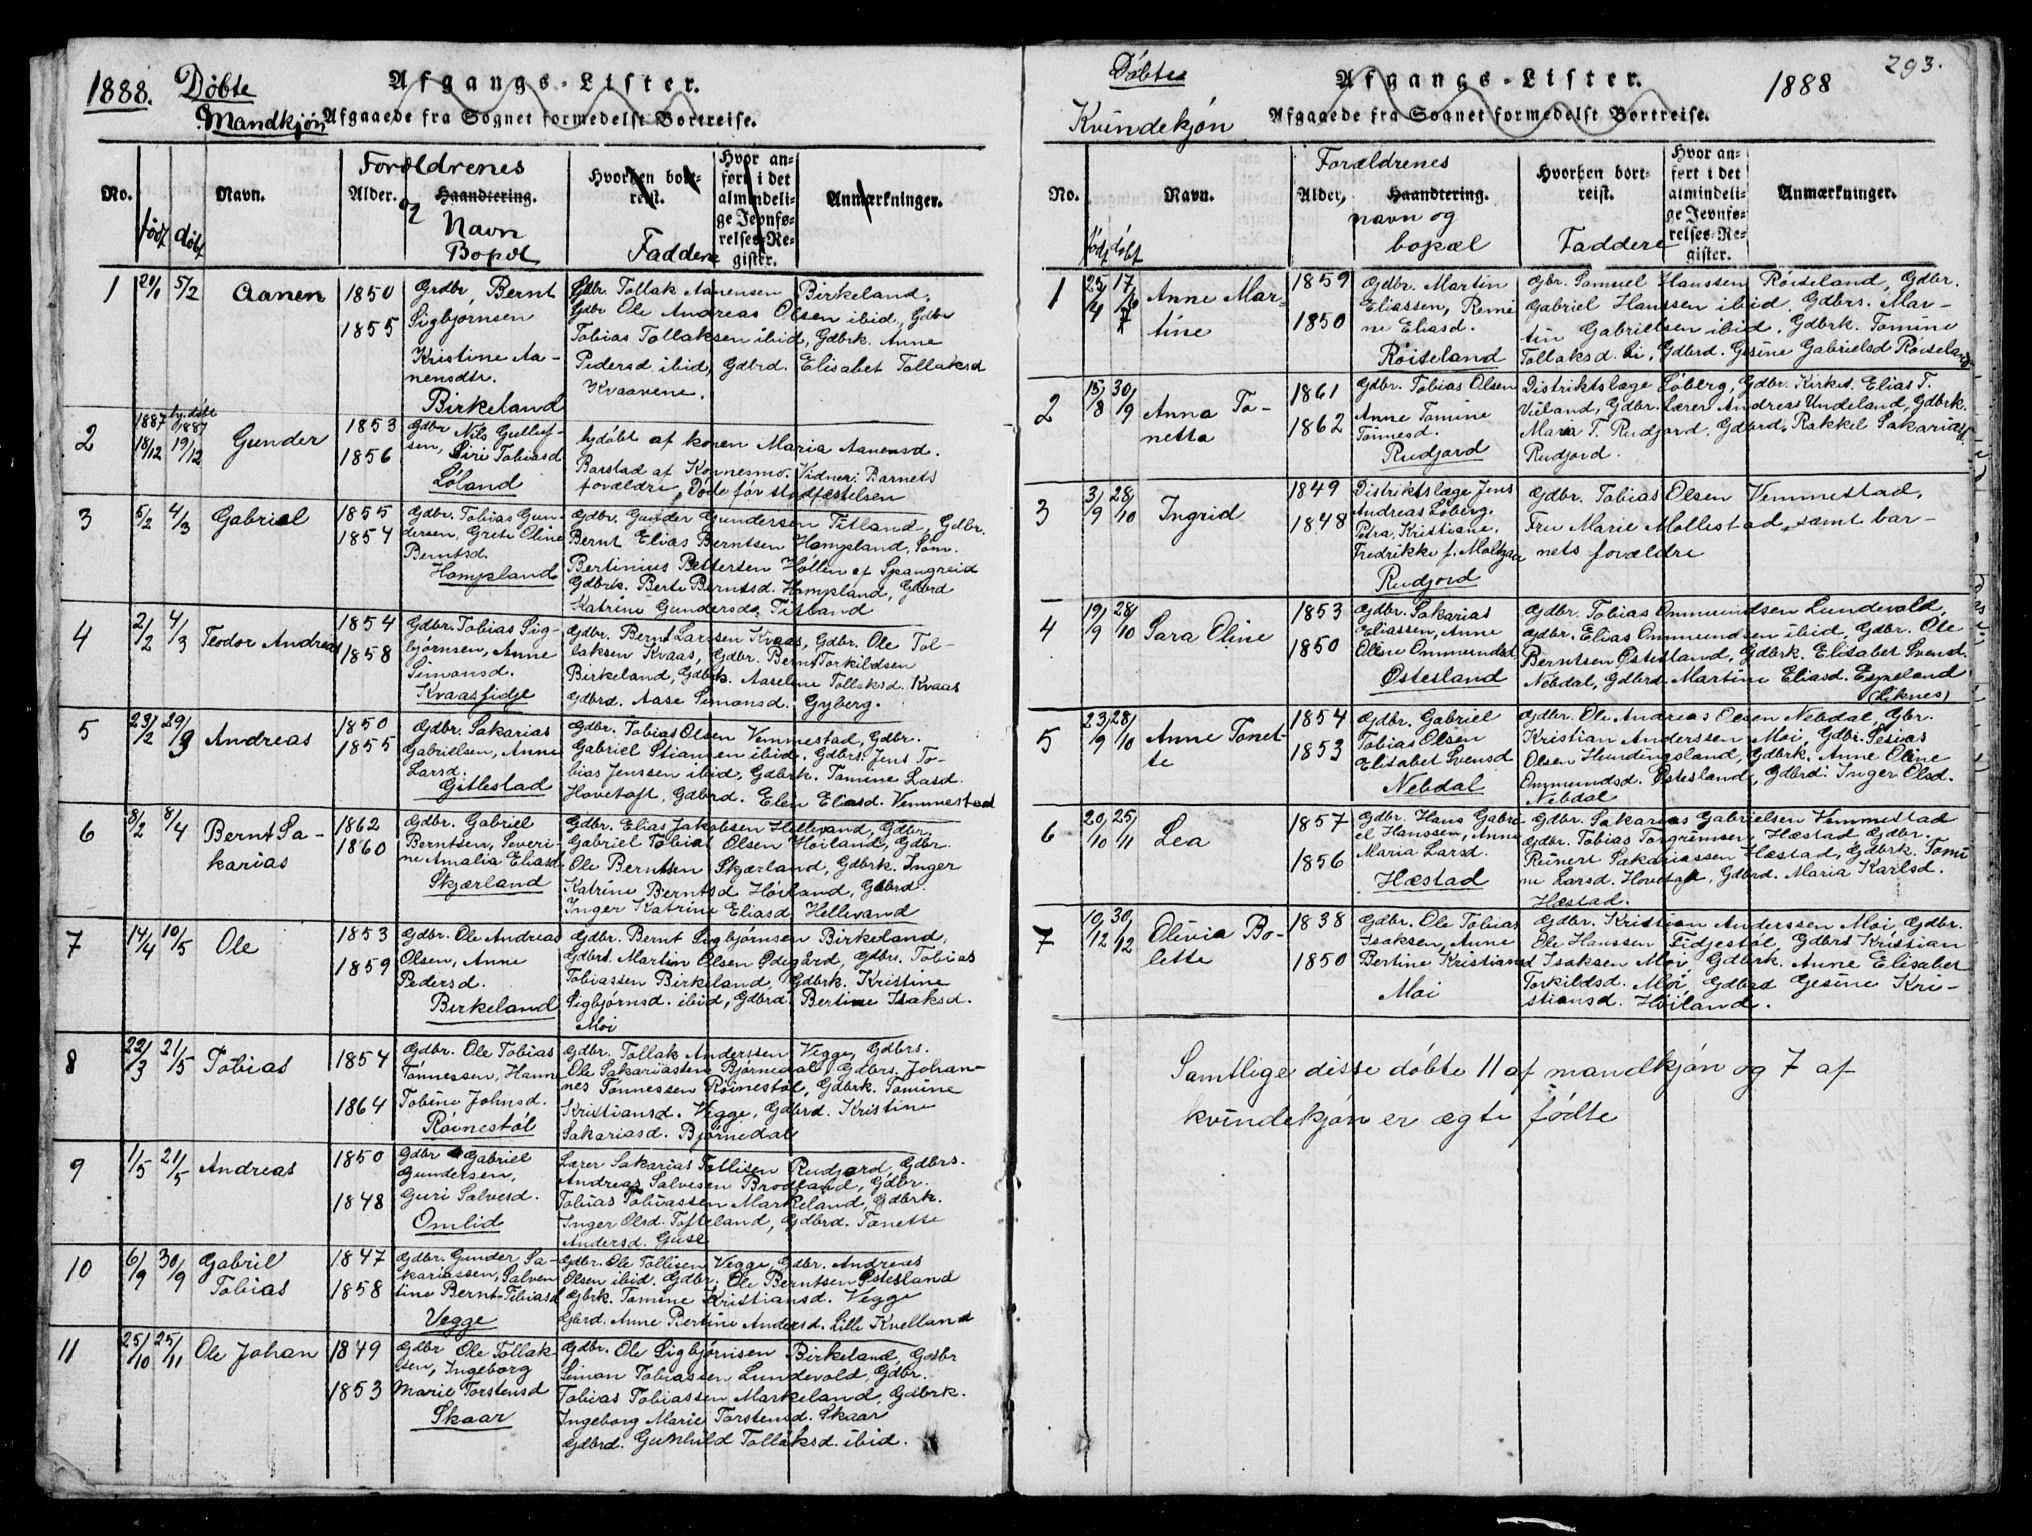 1888. Døbte
Mandkjøn
Afgangs-Lister.
Afgaaede fra Sognet formedelst Bortreise.
No.
født døbt
Navn.
Forældrenes
Alder.
og
Haandtering.
Navn
Bopæl
Hvorhen bort-
reist.
Faddere
Hvor an-
ført i det
almindeli-
ge Jevnfø-
relses-Re-
gister.
Anmærkninger.
1 20/1 5/2 Aanen 1850 1855
Grdbr. Bernt
Sigbjørnsen
Kristine Aa-
nensdtr.
Birkeland
Gdbr. Tollak Aanensen Birkeland,
Gdbr Ole Andreas Olsen ibid, Gdbr
Tobias Tollaksen ibid, Gdbrk. Anne
Pedersd ibid, Gdbrd. Elisabet Tollaksd
Kvaavene.
2 1887 18/12 hj.døbt 1887 19/12 Gunder 1853 1856
Gdbr Nils Gulluf-
sen, Siri Tobiasd
Løland
hjdøbt af konen Maria Aanensd.
Barstad af Konnesmo. Vidner: Barnets
forældre. Døde før stadfæstelsen
3 5/2 4/3 Gabriel 1855 1854
Gdbr. Tobias Gun-
dersen, Grete Oline
Berntsd.
Hompland
Gdbr. Gunder Gundersen Titland, Gdbr.
Bernt Elias Berntsen Hompland, Søm.
Bertinius Pettersen Høllen af Spangreid
Gdbrk. Berte Berntsd. Hompland, Gdbrd
Katrine Gundersd. Titland
4 2/2 4/3 Teodor Andreas 1854 1858
Gdbr. Tobias Sig-
bjørnsen, Anne
Simonsd.
Kvaasfidje
Gdbr. Bernt Larssen Kvaas, Gdbr. Ole Tol-
laksen Kvaas, Gdbr. Bernt Torkildsen
Birkeland, Gdbrk. Aaselene Tollaksd. Kvaas
Gdbrd. Aase Simonsd. Gyberg.
5 23/2 29/3 Andreas 1850 1855
Gdbr. Sakarias
Gabrielsen, Anne
Larsd.
Gitlestad
Gdbr. Tobias Olsen Vemmestad, Gdbr.
Gabriel Stiansen ibid. Gdbrs. Jens To-
bias Jenssen ibid, Gdbrk. Tomine Lasd.
Hovetoft, Gdbrd. Elen Eliasd. Vemmestad
6 8/2 8/4 Bernt Sa-
karias 1862 1860
Gdbr. Gabriel
Berntsen, Severi-
ne Amalia Eliasd
Skjærland
Gdbr. Elias Jakobsen Hellevand, Gdbr.
Gabriel Tobias Olsen Høiland, Gdbr.
Ole Berntsen Skjærland, Gdbrk. Inger
Katrine Berntsd Høiland, Gdbrd.
Inger Katrine Eliasd. Hellevand
7 14/4 10/5 Ole 1853 1859
Gdbr. Ole Andreas
Olsen, Anne
Pedersd.
Birkeland
Gdbr. Bernt Sigbjørnsen Birkeland,
Gdbrs. Martin Olsen Ødegård, Gdbr. Tobias
Tobiassen Birkeland, Gdbrk. Kristine
Sigbjørnsd. ibid, Gdbrd. Bertine Isaksd.
Moi
8 22/3 21/5 Tobias 1854 1864
Gdbr. Ole Tobias
Tønnessen, Hanne
Tobine Johnsd.
Røinestøl
Gdbr. Tollak Anderssen Vegge, Gdbrs.
Ole Sakariassen Bjørnedal, Gdbrs. Johan-
nes Tønnessen Røinestøl, Gdbrk. Tomine
Kristiansd. Vegge, Gdbrd. Kristine
Sakariasd. Bjørnedal
9 1/5 21/5 Andreas 1850 1848
Gdbr Gabriel
Gundersen,
Guri Salvesd.
Omlid
Lærer Sakarias Tollisen Rudjord, Gdbrs.
Andreas Salvesen Brodland, Gdbr.
Tobias Tobiassen Markeland, Gdbrk.
Inger Olsd. Tofteland, Gdbrd. Tonette
Andersd. Guse
10 6/9 30/9 Gabriel
Tobias 1847 1858
Gdbr. Gunder Sa-
kariassen, Salven
tine Bernt-Tobiasd
Vegge
Gdbr. Ole Tollisen Vegge, Gdbr. Andreas
Olsen ibid. Gdbr. Ole Berntsen Østesland
Gbrk. Tomine Kristiansd. Vegge
Gdbrd. Anne Bertine Andersd. Lille Kvelland
11 25/10 25/11 Ole Johan 1849 1853
Gdbr Ole Tollak-
sen, Ingeborg
Marie Torstensd
Skaar
Gdbr. Ole Sigbjørnsen Birkeland, Gdbr
Simon Tobiassen Lundevold, Gdbr.
Tobias Tobiassen Markeland, Gdbrk.
Ingeborg Marie Torstensd. Skaar
Gdbrd. Gunhild Tollaksd. ibid.
293.
Døbte
Kvindekjøn
Afgangs-Lister.
1888
Afgaaede fra Sognet formedelst Bortreise.
No.
født døbt
Navn.
Forældrenes
Alder,
Haandtering.
navn og
bopæl
Hvorhen bort-
reist.
Faddere
Hvor an-
ført i det
almindeli-
ge Jevnfø-
relses-Re-
gister.
Anmærkninger.
1 25/4 17/6 Anne Mar-
tine 1859 1850
Gdbr. Martin
Eliassen, Remi
ne Eliasd.
Røiseland
Gbr. Samuel Hanssen Røiseland, Gdbr.
Gabriel Hanssen ibid. Gdbrs. Mar-
tin Gabrielsen ibid, Gdbrk. Tomine
Tollaksd. Li, Gdbrd. Gesine Gabrielsd Røiseland
2 15/8 30/9 Anna To-
netta 1861 1862
Gdbr. Tobias Olsen
Anne Tomine
Tønnesd.
Rudjord
Distriktslæge Løberg, Gdbr. Kirkes. Elias T.
Vieland, Gdbr. Lærer Andreas Undeland, Gdbrk.
Maria T. Rudjord, Gdbrd. Rakkel Sakariasd.
Rudjord.
3 3/9 28/10 Ingrid 1849 1848
Distriktslæge Jens
Andreas Løberg.
Petra Kristiane
Fredrikke f. Moltzau
Rudjord
Gdbr. Tobias Olsen Vemmestad,
Fru Marie Mollestad, samt bar-
nets forældre
4 19/9 28/10 Sara Oline 1853 1850
Gdbr. Sakarias
Eliassen, Anne
Oline Ommundsd
Østesland
Gdbr. Tobias Ommundsen Lundevold,
Gdbr. Elias Ommundsen ibid, Gdbr. Ole
Berntsen Østesland, Gdbrk. Elisabet Svensd.
Nebdal, Gdbrd. Martine Eliasd. Espeland
(Liknes)
5 23/9 28/10 Anne Tonet-
te 1854 1853
Gdbr. Gabriel
Tobias Olsen
Elisabet Svensd
Nebdal
Gdbr. Ole Andreas Olsen Nebdal, Gbr.
Kristian Anderssen Moi, Gdbr. Sesias
Olsen Hundingsland, Gdbrk. Anne Oline
Ommundsd. Østesland, Gdbrd. Inger Olsd.
Nebdal
6 20/10 25/11 Lea 1857 1856
Gdbr. Hans Gabri-
el Hanssen, Anne
Maria Larsd.
Hæstad
Gdbr. Sakarias Gabrielsen Vemmestad
Gdbr. Tobias Torgrimsen Hæstad Gdbr.
Reinert Sakariassen Hæstad, Gdbrk. Tomi
ne Larsd. Hovetoft, Gdbrd. Maria Karlsd.
Hæstad.
7 10/12 30/12 Olivia Bo-
lette 1838 1850
Gdbr. Ole Tobias
Isaksen, Anne
Bertine Kristiansd
Moi
Gdbr. Kristian Anderssen Moi, Gdbr.
Ole Hanssen Fidjestøl, Gdbrs Kristian
Isaksen Moi, Gdbrk. Anne Elisabet
Torkildsd. Moi, Gdbrd Gesine Kri-
stiansd. Høiland.
Samtlige disse døbte 11 af mandkjøn og 7 af
kvindekjøn er ægte fødte